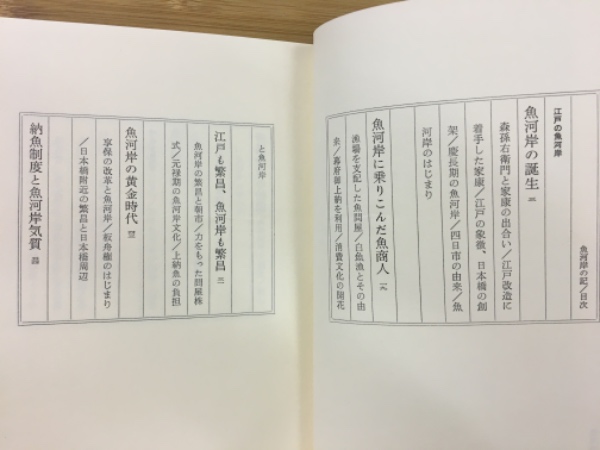 魚河岸の記/目次
江戸の魚河岸
魚河岸の誕生
森孫右衛門と家康の出合い/江戸改造に
着手した家康/江戸の象徴、日本橋の創
架/慶長期の魚河岸/四日市の由来/魚
河岸のはじまり
魚河岸に乗りこんだ魚商人
漁場を支配した魚問屋/白魚漁とその由
来/幕府御上納を利用/消費文化の開花
と魚河岸
江戸も繁昌、魚河岸も繁昌
魚河岸の繁昌と朝市/力をもった問屋株
式/元禄期の魚河岸文化/上納魚の負担
魚河岸の黄金時代
享保の改革と魚河岸/板舟権のはじまり
/日本橋附近の繁昌と日本橋周辺
納魚制度と魚河岸気質